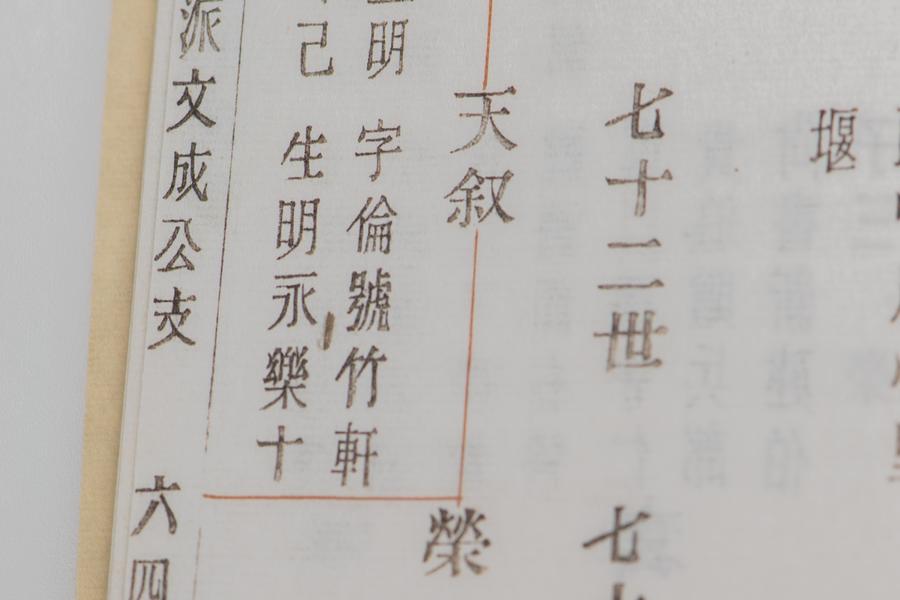 堰
七十二世
七
天叙
榮
明 字倫號竹軒
己 生明永樂十
派文成公支
六四